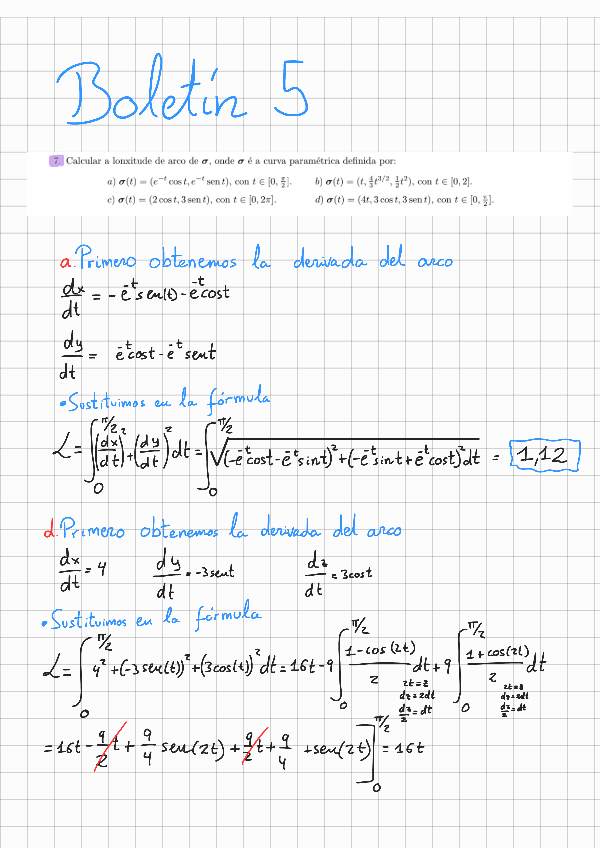 Boletín 5
7. Calcular a lonxitude de arco de σ, onde σ é a curva paramétrica definida por:
a) σ(t) = (e^{-t} cos t, e^{-t} sen t), con t ∈ [0, π/2]. b) σ(t) = (t, 4/3 t^{3/2}, 1/2 t²), con t ∈ [0, 2].
c) σ(t) = (2 cos t, 3 sen t), con t ∈ [0, 2π]. d) σ(t) = (4t, 3 cos t, 3 sen t), con t ∈ [0, π/2].
a. Primero obtenemos la derivada del arco
dx/dt = -e^{-t} sen(t) - e^{-t} cost
dy/dt = e^{-t} cost - e^{-t} sent
• Sustituimos en la fórmula
L = ∫_0^{π/2} (dx/dt)² + (dy/dt)² dt = ∫_0^{π/2} √(-e^{-t}cost - e^{-t}sint)² + (-e^{-t}sint + e^{-t}cost)² dt = 1,12
d. Primero obtenemos la derivada del arco
dx/dt = 4 dy/dt = -3sent dz/dt = 3cost
• Sustituimos en la fórmula
L = ∫_0^{π/2} 4² + (-3sen(t))² + (3cos(t))² dt = 16t - 9 ∫_0^{π/2} 1-cos(2t)/2 dt + 9 ∫_0^{π/2} 1+cos(2t)/2 dt
2t=z 2t=z
dz=2dt dz=2dt
dz/2=dt dz/2=dt
= 16t - 9/2 t + 9/4 sen(2t) + 9/2 t + 9/4 + sen(2t)]_0^{π/2} = 16t